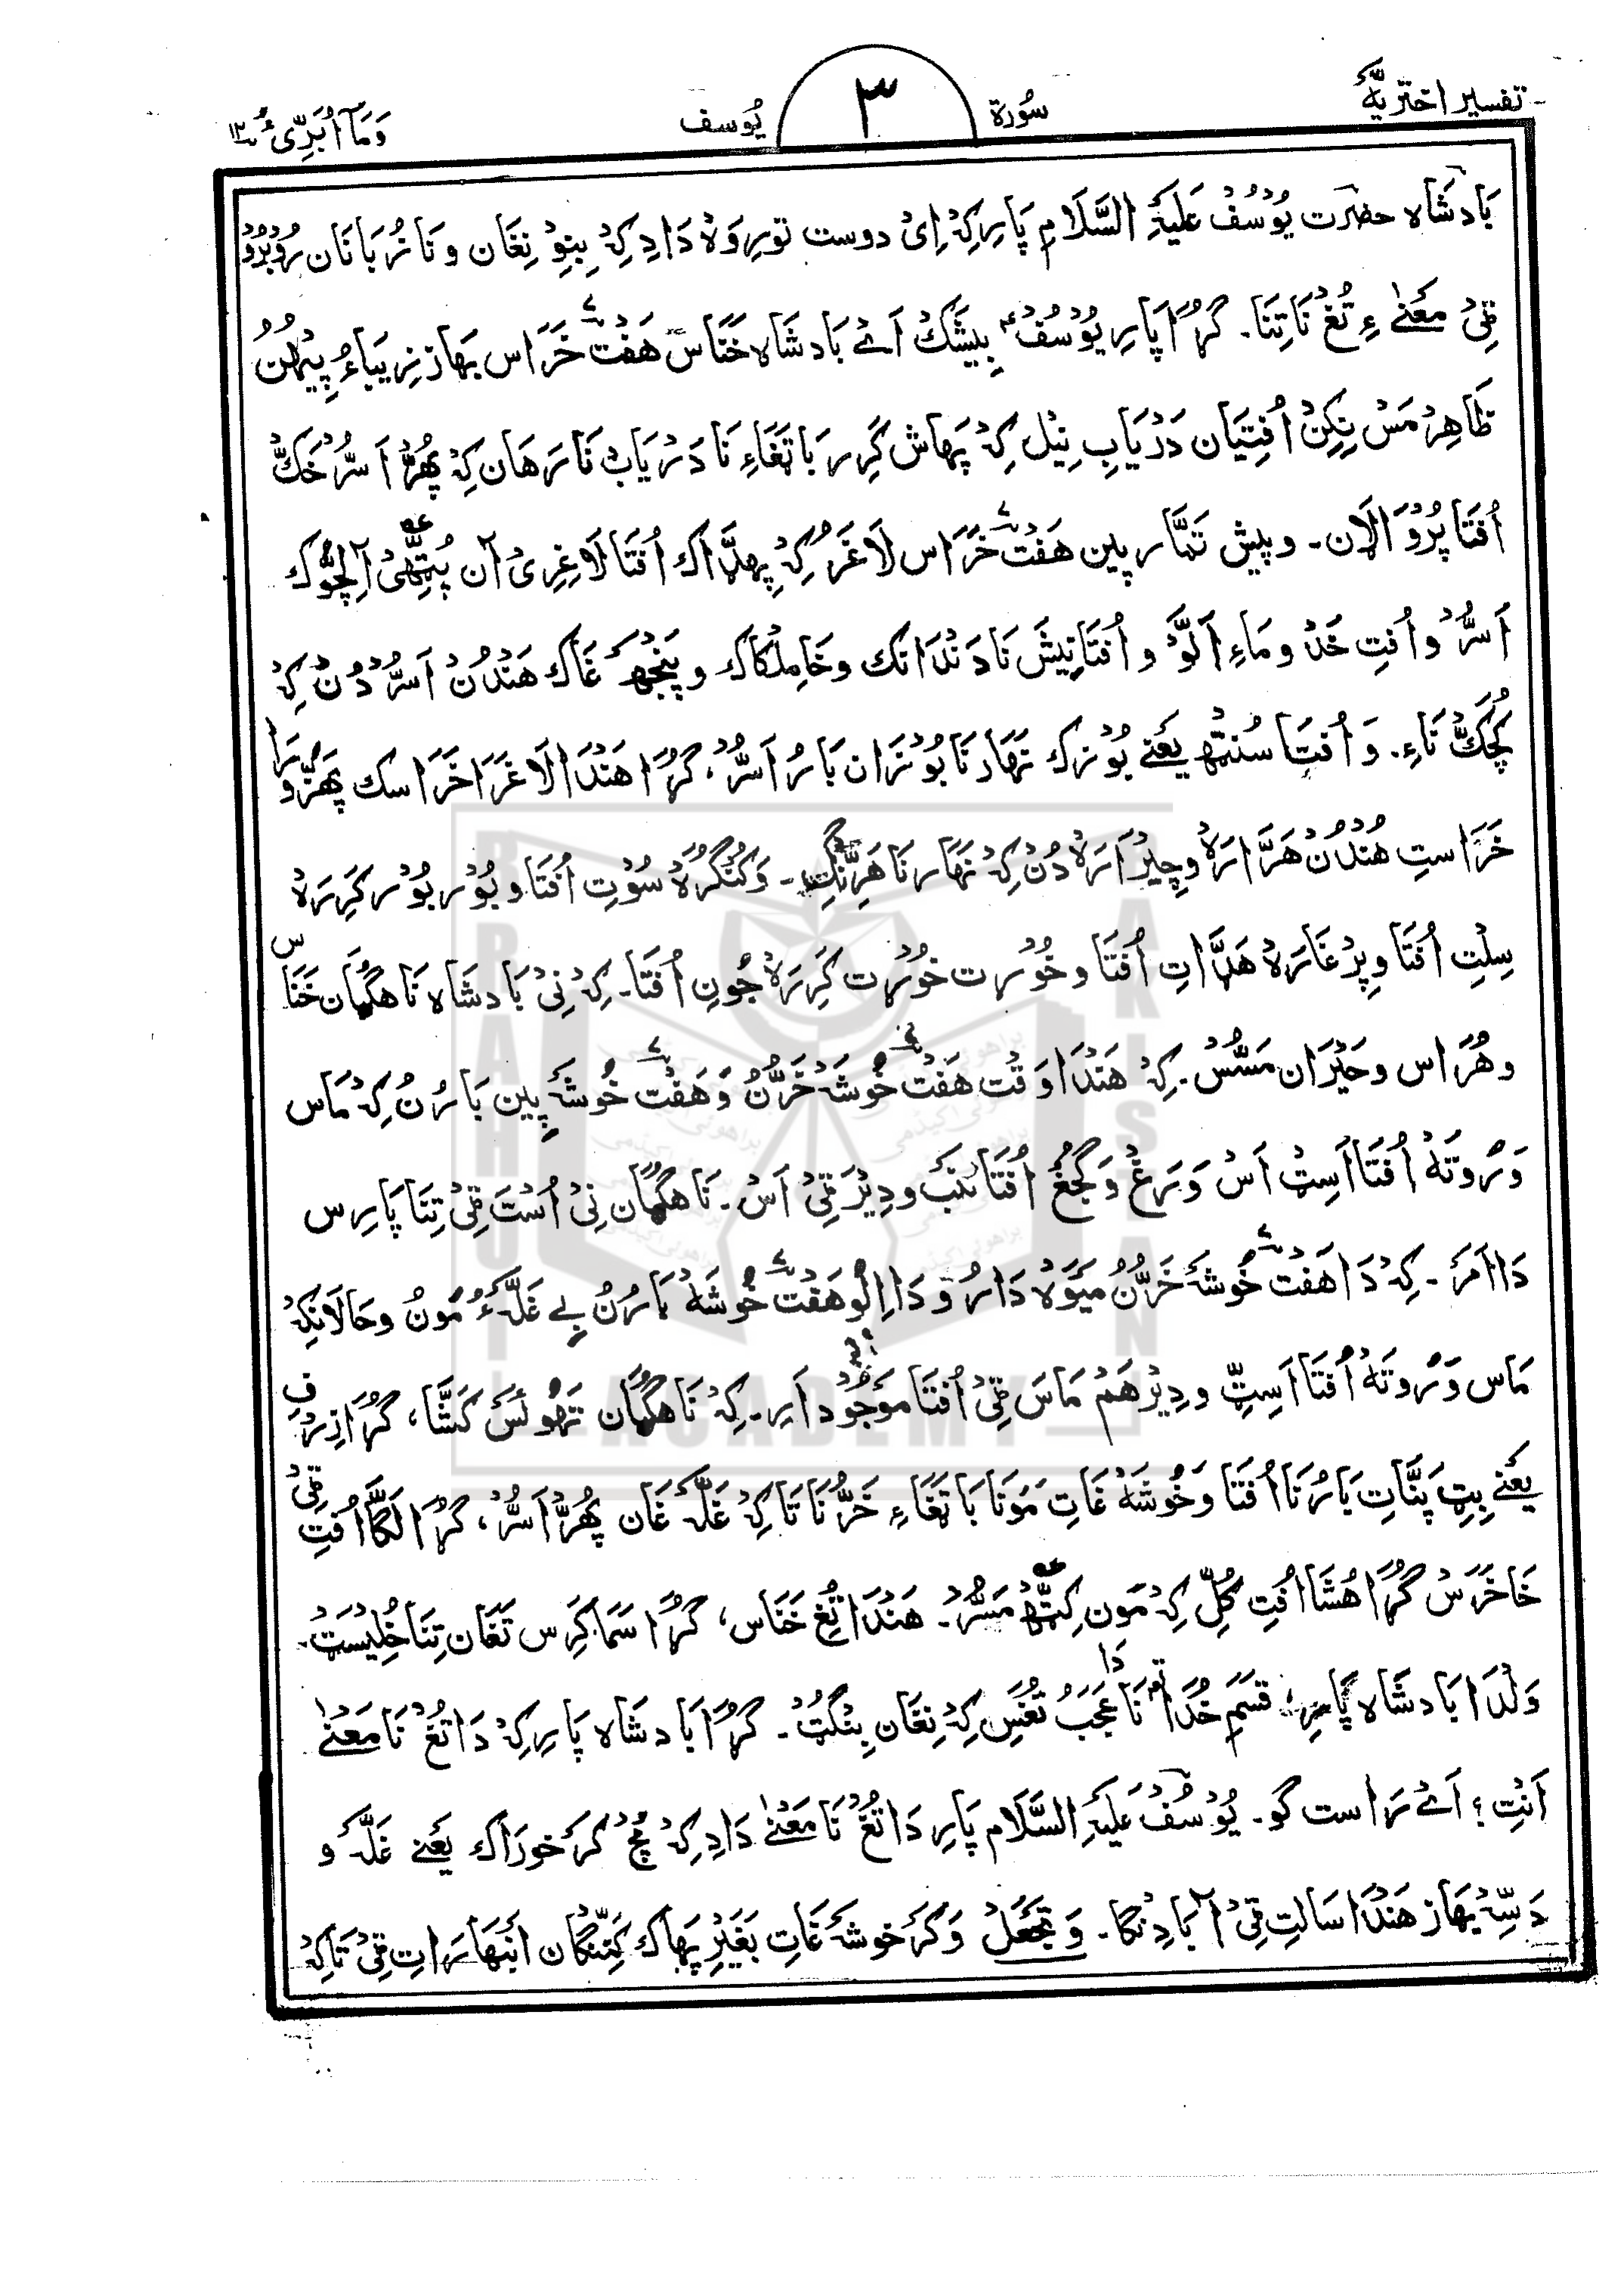 تفسیر اختریَّہ سُورة ٣ یُوسف وَمَآ اُبَرِّیُٔ ١٣
بَادشَاہ حضرت یُوْسُفْ عَلَیْہِ السَّلَامِ پَارِ کِہْ اِیْ دوست تورِوَہْ دَادِ کِہْ بِنِوْ نِغَان و نَا زُبَانَان رُوْبُرُوْ
قِیْ مَعْنٰے ءِ تُغْ نَاتِنَا۔ گُڑَا پَارِ یُوْسُفْ بِیشَکْ اَے بَادشَاہ خَنَّاسْ ھَفْتْ خَرَاس بَھَاز زِیبَاءُ پِیْھُنْ
ظَاھِرْ مَسْ نِکِنْ اُفْتِیَان دَرْیَابِ نِیْل کِہْ پَھاش کَرِر بَا تَغَاءِ نَا دَرْیَابْ نَا رَھَان کِہْ پُھَرْ اَسُّرْ خَکَّ
اُفْتَا پُرُوْ اَلَان۔ و پیش تَمَّار پین ھَفْتْ خَرَاس لَاغَرْ کِہْ پِھِلَّاک اُفْتَا لَاغِرِیْ آن پُتِھِّیْ اٰلِچُّوْک
اَسُّرْ و اُفْتِ خَدْ و مَاءِ اَلَّوْ و اُفْتَا نِیشْ نَا دَنْدَانک و خَامِلْکَاک و پَنْجْھ غَاک ھَنْدُنْ اَسُّرْ دُنْ کِہْ
کُچَکَّ نَاءِ۔ وَ اُفْتَا سُنْتْھ یَعْنے بُوْزک نَھَارْ نَا بُوْزَان بَارْ اَسُّرْ، گُڑَا ھَنْدَا لَاغَرَا خَرَاسک پَھَرْوْرَا
خَرَاستِ ھُنْدُنْ ھَرَّارَہْ و چِیْرَارَہْ دُنْ کِہْ نَھَار نَا ھَرِنْگِ۔ وَکُنْگُرَہْ سُوْتِ اُفْتَا و بُوْر بُوْر کَرِرَہْ
سِلِتِ اُفْتَا و پِرْغَارَہْ ھَڈَّاتِ اُفْتَا و خُوْرت خُوْرت کَرِرَہْ جُونِ اُفْتَا۔ کِہْ نِیْ بَادشَاہ نَاھگُمَان خَنَاس
و ھُرَاس و حَیْرَان مَسُّسْ۔ کِہْ ھَنْدَا وَقْت ھَفْتْ خُوشَہْ خَرُّنْ وَ ھَفْتْ خُوشَہ پین بَارُنُ کِہْ مَاس
وَرُوتَہْ اُفْتَا اَسِٹْ اَسْ وَ بَرَغْ وَ گُجُغْ اُفْتَا نَبْ و دِیْرَ قِیْ اَسْ۔ نَاھگُمَان نِیْ اُسْتَ قِیْ تِنَا پَارِس
دَا اَمَرَ۔ کِہْ دَا ھَفْتْ خُوشَہْ خَرُّنُ مِیْوَہْ دَارُ وَ دَا اِلَوْ ھَفْتْ خُوشَہْ بَارُنُ بے غَلَّہءُ مَونُ و حَالَانِکِہْ
مَاس وَرُوتَہْ اُفْتَا اَسِٹِّ و دِیْر ھَمْ مَاسَ قِیْ اُفْتَا مَوْجُوْد اَرِ۔ کِہْ نَاھگُمَان تَھولَسْ کَشَّا، گُڑَا ذِرْفِ
یَعْنے بِیتِ پَنَّاتِ بَارُنَا اُفْتَا وَ خُوشَہْ غَاتِ مَوَنَا بَاتَغَاءِ خَرُّنَا تَا کِہْ غَلَّہ غَان پُھَرْ اَسُّرْ، گُڑَا لَگَّا اُفْتِ قِیْ
خَاخَرَسْ گُڑَا ھُشَّا اُفْتِ کُلِّ کِہْ مَونِ کِٹّْھ مَسُّرْ۔ ھَنْدَا تُغْ خَنَاس، گُڑَا سَمَا کَرِس تَغَان تِنَا خُلِیْسَتْ۔
وَلْدَا بَادشَاہ پَارِ، قَسَم خُدَا نَا دَا تو عَجَبُ تُغْسِ کِہْ نِغَان بِنْگُٹْ۔ گُڑَا بَادشَاہ پَارِ کِہْ دَا تُغْ نَا مَعْنٰے
اَنْتِ؟ اَے رَاست گو۔ یُوْسُفْ عَلَیْہِ السَّلَام پَارِ دَا تُغْ نَا مَعْنٰے دَادِ کِہْ مُچْ کَرَ خورَاک یَعْنے غَلَّہ و
دَسِّہْ بَھَاز ھَنْدَا سَالتِ قِیْ آبَادِ نگا۔ وَ تَجْعَلْ وَ کَرَ خوشَہْ غَاتِ بَغَیْرِ پَھاک کَنِنْگَان اَنْبَھارَاتِ قِیْ تَاکِہْ